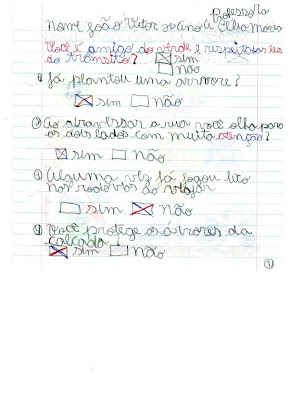 Professora
Nome João Vitor 5º ano A Célia Maria
Você é amigo do verde e respeita as leis
do trânsito? sim
não
Já plantou uma árvore?
sim não
Ao atravessar a rua você olha para
os dois lados com muita atenção?
sim não
Alguma vez já jogou lixo
nas rodovias ao viajar
sim não
Você protege as árvores da
calçada?
sim não
1